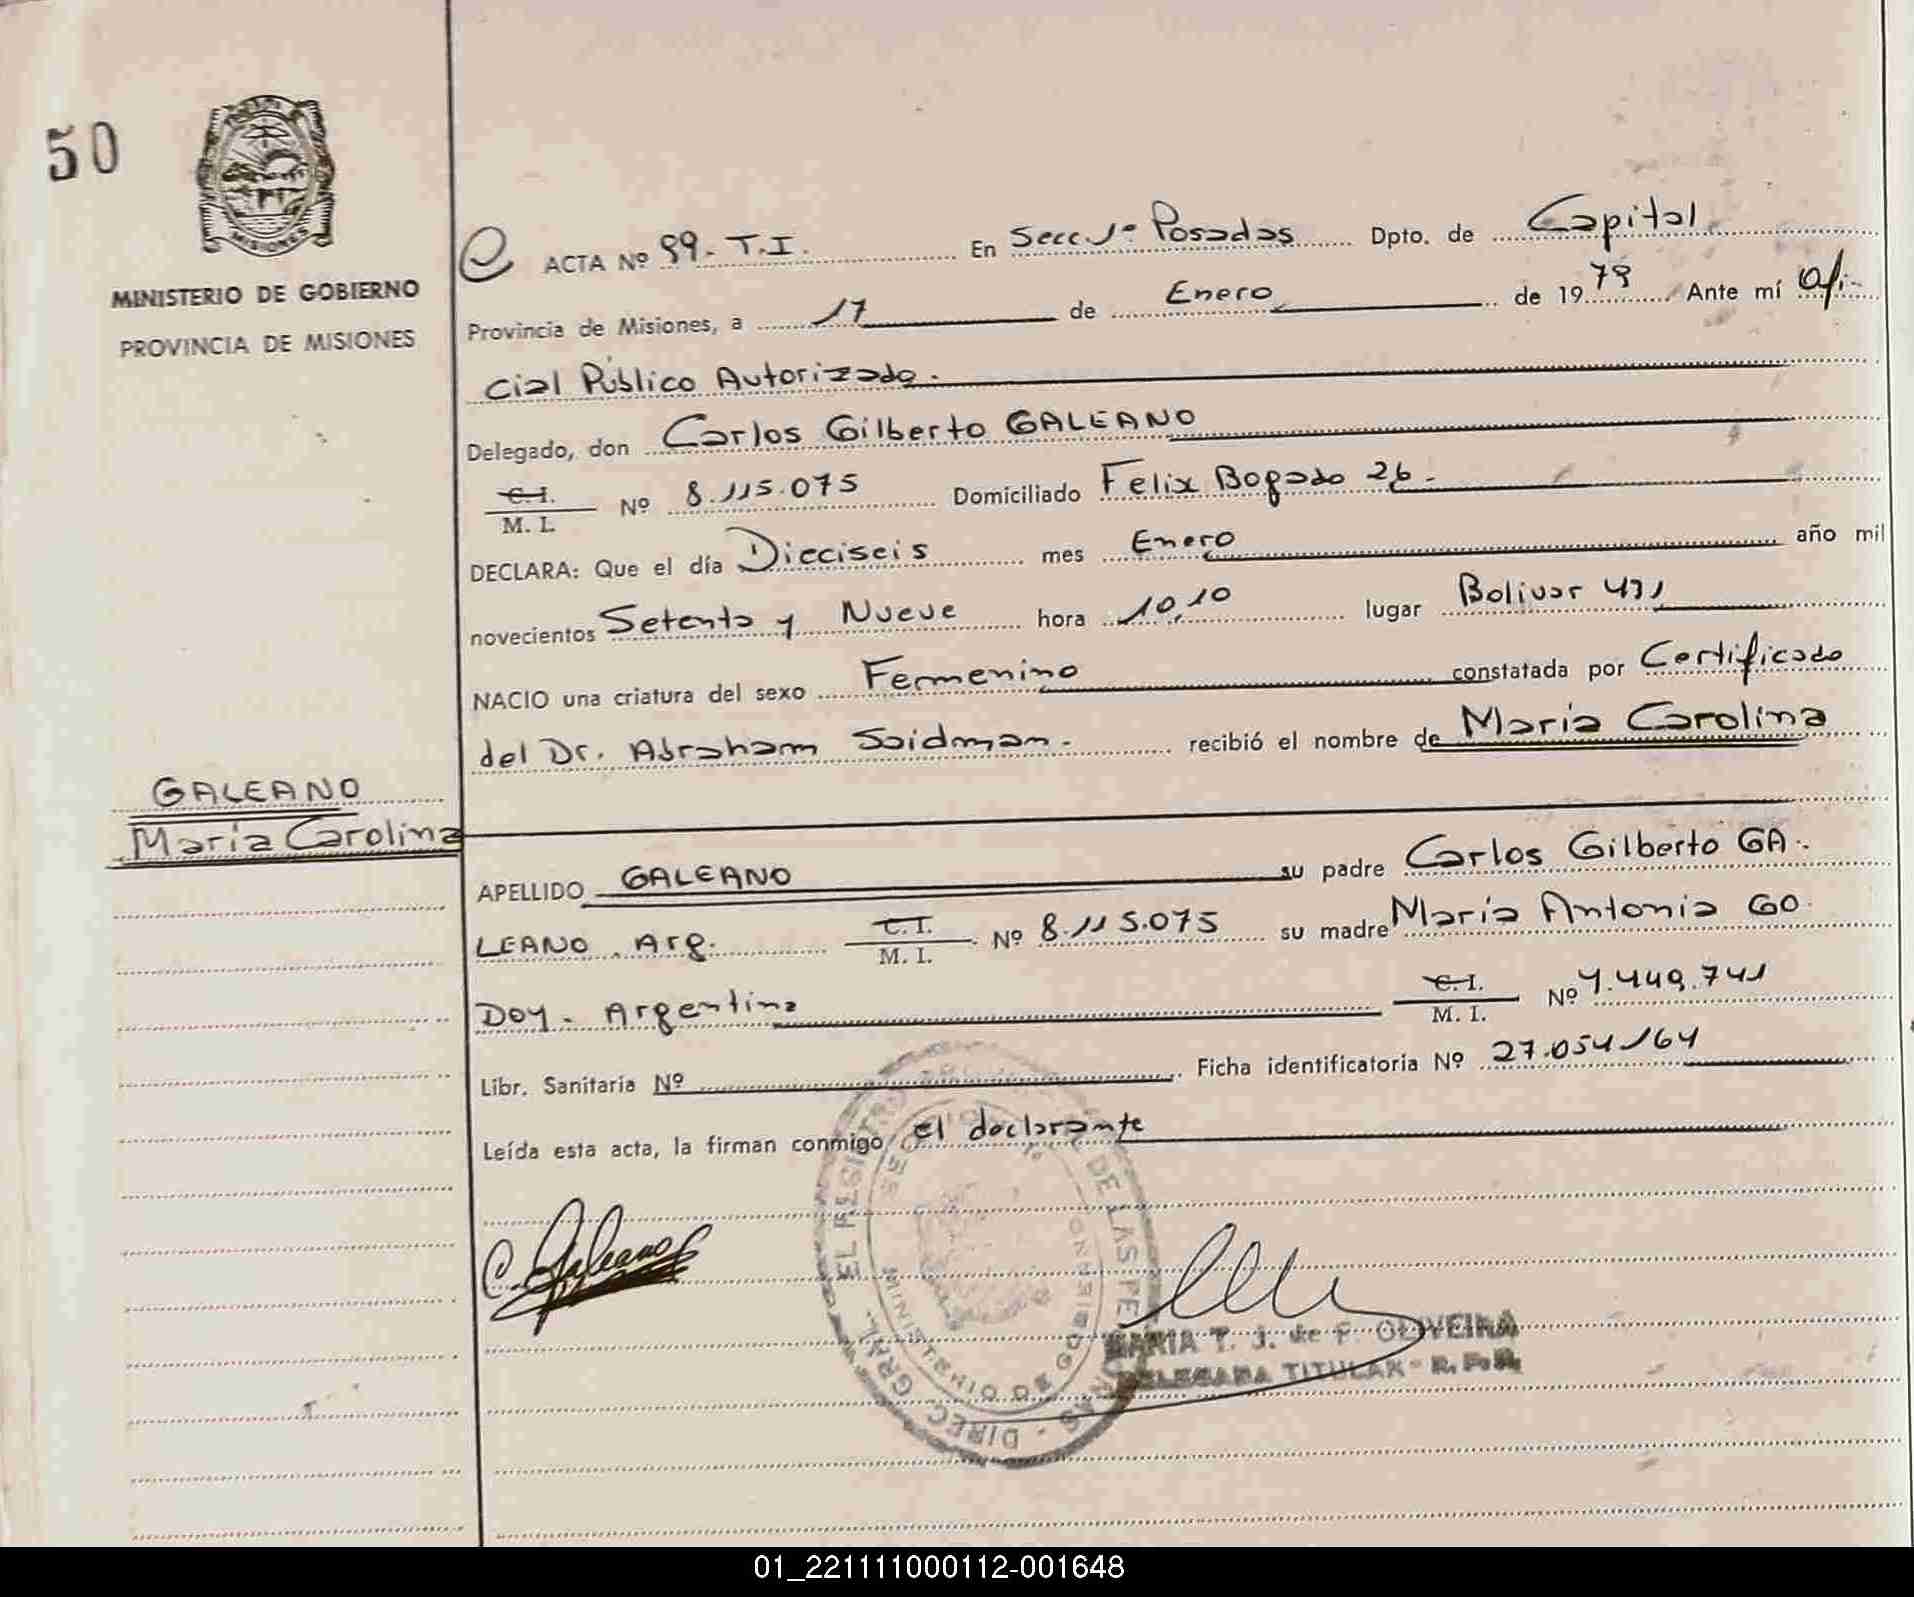 50
MISIONES
MINISTERIO DE GOBIERNO
PROVINCIA DE MISIONES
ACTA Nº 99 - T.I. En Secc. 1ª Posadas Dpto. de Capital
Provincia de Misiones, a 17 de Enero de 1979 Ante mí Ofi-
cial Público Autorizado.
Delegado, don Carlos Gilberto GALEANO
C. I.
M. I. Nº 8.115.075 Domiciliado Felix Bogado 26.
DECLARA: Que el día Dieciseis mes Enero año mil
novecientos Setenta y Nueve hora 10,10 lugar Bolivar 431
NACIO una criatura del sexo Femenino constatada por Certificado
del Dr. Abraham Saidman. recibió el nombre de María Carolina
GALEANO
María Carolina
APELLIDO GALEANO su padre Carlos Gilberto GA-
LEANO. Arg. C. I. M. I. Nº 8.115.075 su madre María Antonia GO
DOY. Argentina C. I. M. I. Nº 4.449.741
Libr. Sanitaria Nº Ficha identificatoria Nº 27.054/64
Leída esta acta, la firman conmigo el declarante
C. Galeano
DIREC. GRAL. DEL REGISTRO DE LAS PERSONAS
MINISTERIO DE GOBIERNO
MARIA T. J. de F. OLIVEIRA
DELEGADA TITULAR - R. P. P.
01_221111000112-001648